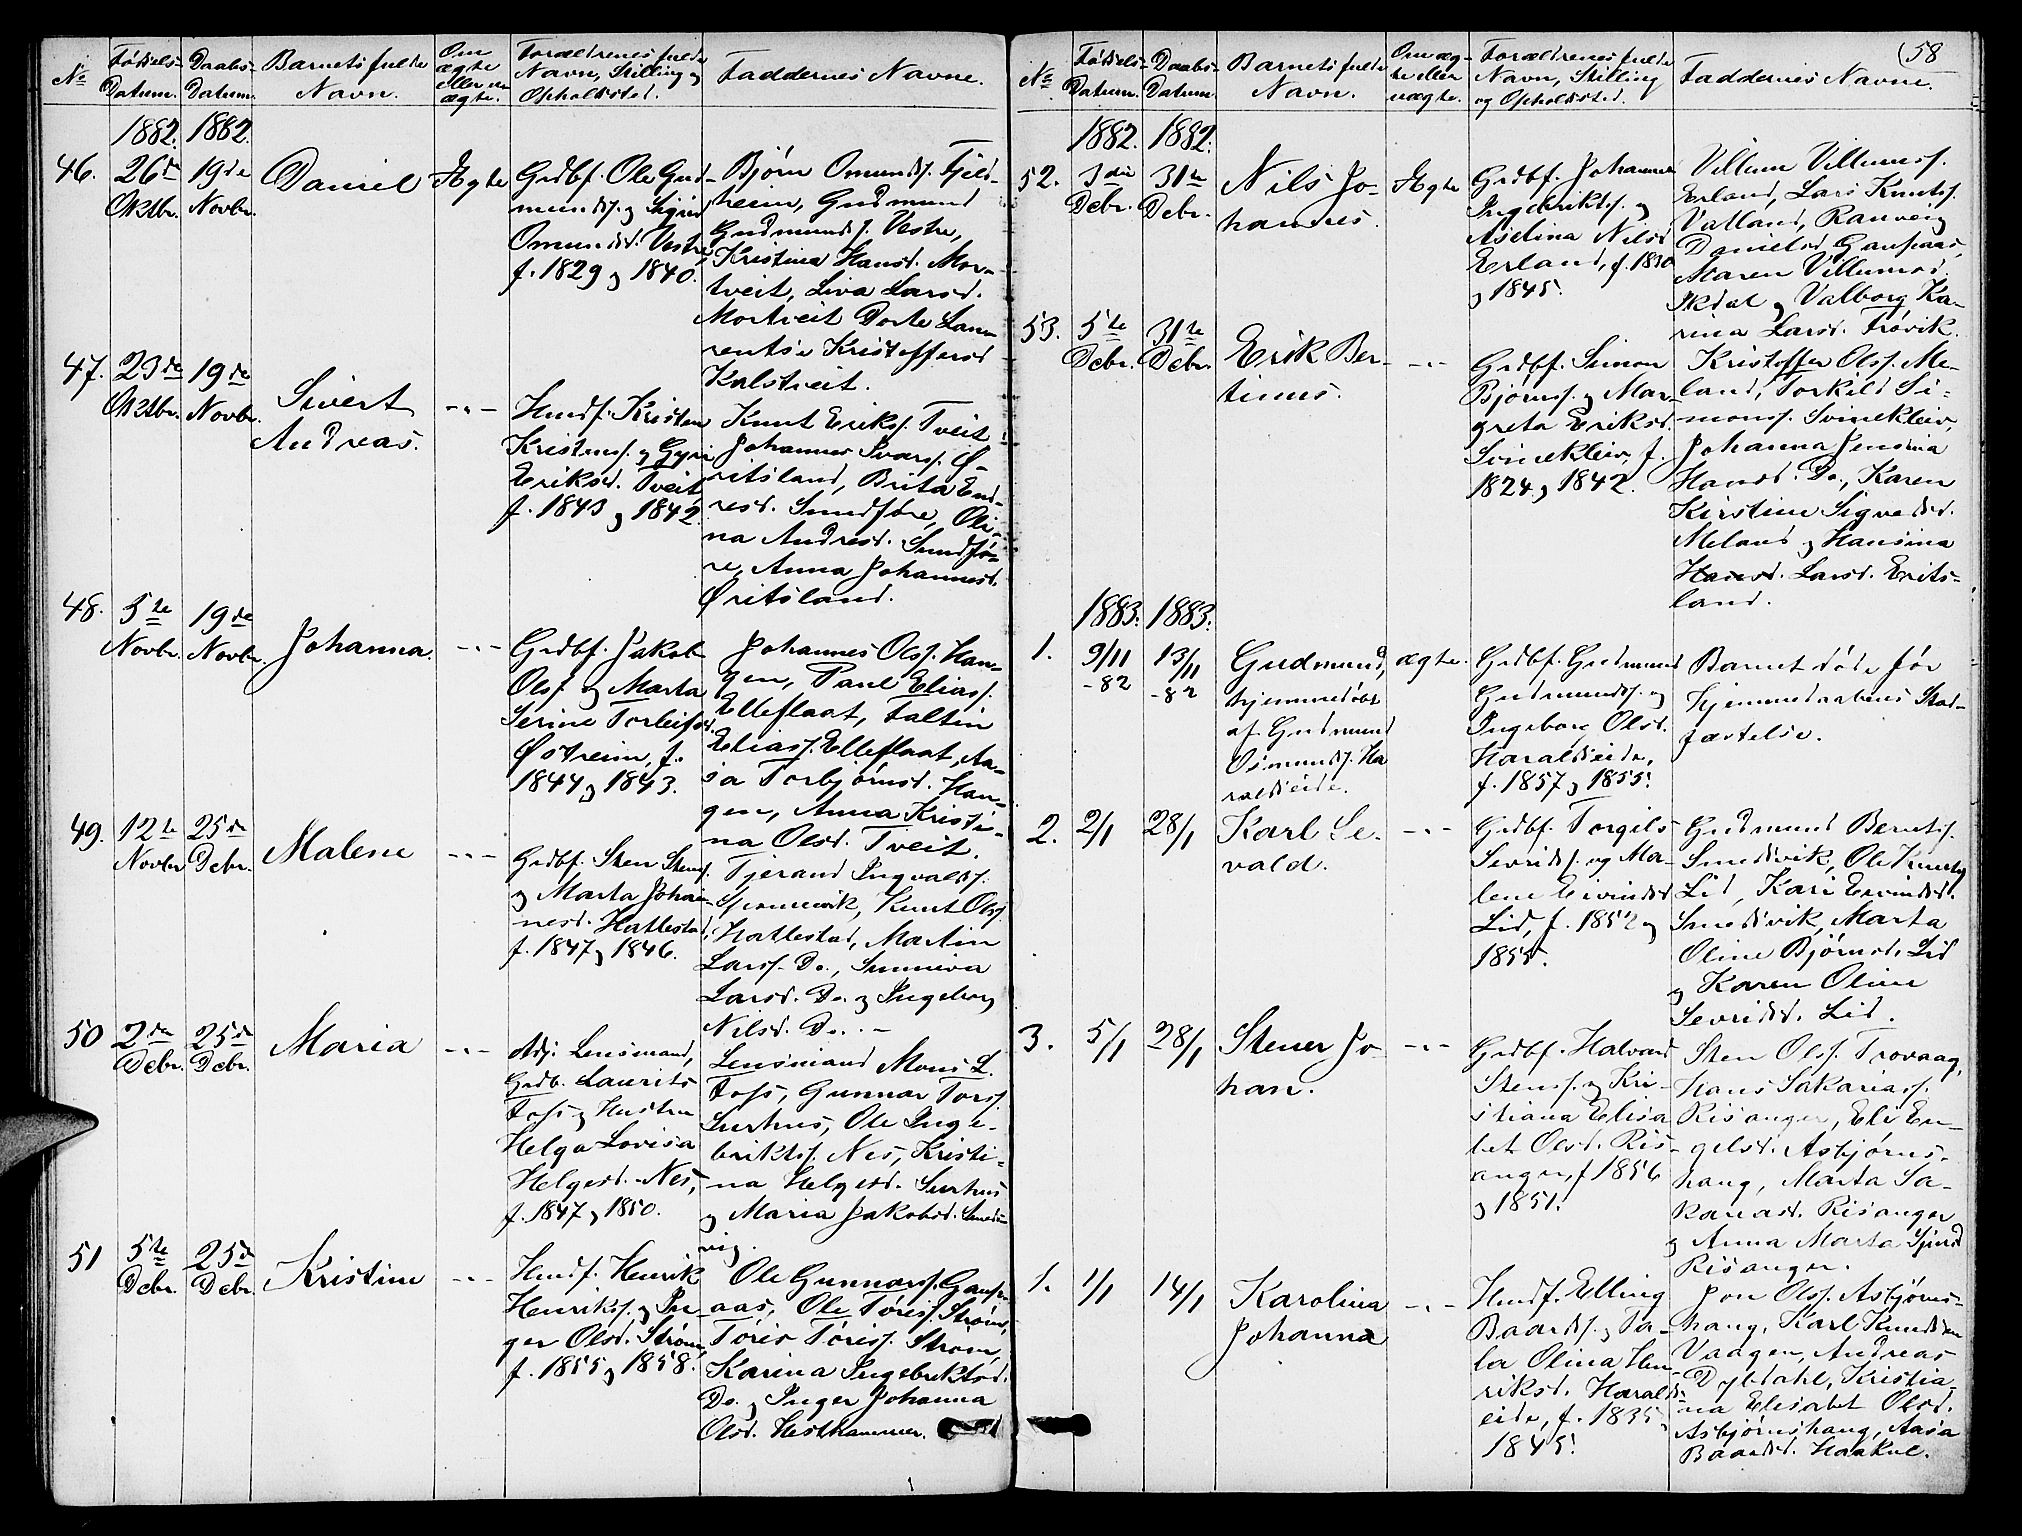 58
No
Fødsels-
Datum.
Daabs-
Datum.
Barnets fulde
Navn.
Om
ægte
eller u-
ægte.
Forældrenes fulde
Navn, Stilling og
Opholdssted.
Faddernes Navne.
1882. 1882.
46.
26de
Oktbr.
19de
Novbr.
Daniel
Ægte
Grdbf. Ole Gud-
mundsf. og Sigrid
Omundsd. Vestre
f. 1829 og 1840.
Bjørn Omundsf. Fjeld-
heim, Gudmund
Gudmundsf. Vestre,
Kristina Hansd. Mor-
tveit, Liva Larsd.
Mortveit Dorte Lau-
rentse Kristoffersd
Kalstveit.
47.
23de
Oktbr.
19de
Novbr.
Sivert
Andreas.
-"-
Husmf. Kristen
Kristensf. og Gyri
Eriksd. Tveit
f. 1843 og 1842.
Knut Eriksf. Tveit
Johannes Ivarsf. Ø-
ritsland, Brita End-
resd. Sundføre, Oli-
na Andresd. Sundfø-
re, Anna Johannesd.
Øritsland.
48.
5te
Novbr.
19de
Novbr.
Johanna.
-"-
Grdbf. Jakob
Olsf. og Marta
Serine Torleifsd.
Østreim, f.
1844 og 1843.
Johannes Olsf. Hau-
gen, Paul Eliasf.
Elleflaat, Faltin
Eliasf. Elleflaat, Aa-
sa Torbjørnsd. Hau-
gen, Anna Kristi-
na Olsd. Tveit.
49.
12te
Novbr.
25de
Debr.
Malene
-"-
Grdbf. Sten Stensf.
og Marta Johan-
nesd. Hatlestad,
f. 1847 og 1846.
Tjerand Ingvaldsf.
Hatlestad, Martin
Larsf. Do., Sunniva
Larsd. Do. og Ingeborg
Nilsd. Do. -
50
2den
Debr.
25de
Debr.
Maria
-"-
Adj. Lensmand,
Grdb. Laurits
Foss og Hustru
Helga Lovisa
Helgesd. Nes,
f. 1847 og 1850.
Lensmand Mons L.
Foss, Gunnar Torsf.
Surhus, Ole Inge-
briktsf. Nes, Kristi-
na Helgesd. Surhus
og Maria Jakobsd. Smeds-
vig.
51
5te
Debr.
25de
Debr.
Kristine
-"-
Husmf. Henrik
Henriksf. og In-
ger Olsd. Strøm,
f. 1855 og 1858.
Ole Gunnarsf. Gaup-
aas, Ole Tørisf. Strøm,
Tøris Tørisf. Strøm,
Karina Ingebriktsd.
Do. og Inger Johanna
Olsd. Hesthammer.
No
Fødsels-
Datum.
Daabs-
Datum.
Barnets fulde
Navn.
Om æg-
te eller
uægte.
Forældrenes fulde
Navn, Stilling
og Opholdssted.
Faddernes Navne.
1882. 1882.
52.
3die
Debr.
31te
Debr.
Nils Jo-
hannes.
Ægte
Grdbf. Johannes
Ingebriktsf. og
Aselina Nilsd
Erland, f. 1830
og 1845.
Villum Villumsf.
Erland, Lars Knutsf.
Vatland, Ranveig
Danielsd. Gaupaas,
Maren Villumsd.
Økdal og Valborg Ka-
rina Larsd. Trøvik.
53.
5te
Debr.
31te
Debr.
Erik Ber-
tinus.
-"-
Grdbf. Simon
Bjørnsf. og Mar-
greta Eriksd.
Svinekleiv, f.
1824 og 1842.
Kristoffer Olsf. Me-
land, Torkild Si-
monsf. Svinekleiv,
Johanna Jensina
Hansd. Do., Karen
Kirstine Sigvedsd.
Meland og Hansina
Hansd. Larsd. Erits-
land.
1883. 1883.
1.
9/11
-82
13/11
-82
Gudmund,
hjemmedøbt
af Gudmund
Osmundsf. Ha
raldseide.
ægte.
Grdbf. Gudmund
Gudmundsf. og
Ingeborg Olsd.
Haraldseide,
f. 1857 og 1855.
Barnet døde før
Hjemmedaabens Stad-
fæstelse.
2.
2/1
28/1
Karl Se-
vald.
-"-
Grdbf. Torgils
Sevridsf. og Ma-
lene Eivindsd
Lid, f. 1852 og
1855.
Gudmund Berntsf.
Smedsvik, Ole Knutsf.
Lid, Kari Eivindsd.
Smedsvik, Marta
Oline Bjørnsd. Lid
og Karen Oline
Sevridsd. Lid.
3.
5/1
28/1
Stener Jo-
han.
-"-
Grdbf. Halvard
Stensf. og Kri-
stiana Elisa
bet Olsd. Ris-
anger, f 1856
og 1851.
Sten Olsf. Trovaag,
Hans Sakariasf.
Risanger, Eli En-
gelsd. Asbjørns-
haug, Marta Sa-
kariasd. Risanger
og Anna Marta Sjursd
Risanger.
1.
1/1
14/1
Karolina
Johanna
-"-
Husmf. Elling
Baardsf. og Ta-
la Olina Hen-
riksd. Haralds-
eide, f. 1835 og
1845.
Jon Olsf. Asbjørns-
haug, Karl Knudsen
Vaagen, Andreas
Dybdahl, Kristia-
na Elisabet Olsd.
Asbjørnshaug, Aasa
Baardsd. Haakul.